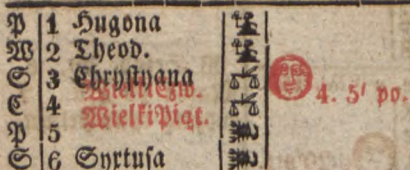 P 1 Hugona
W 2 Theod.
S 3 Chrystyana
C 4 Wielki Czw. 4. 5' po.
P 5 Wielki Piąt.
S 6 Syxtusa